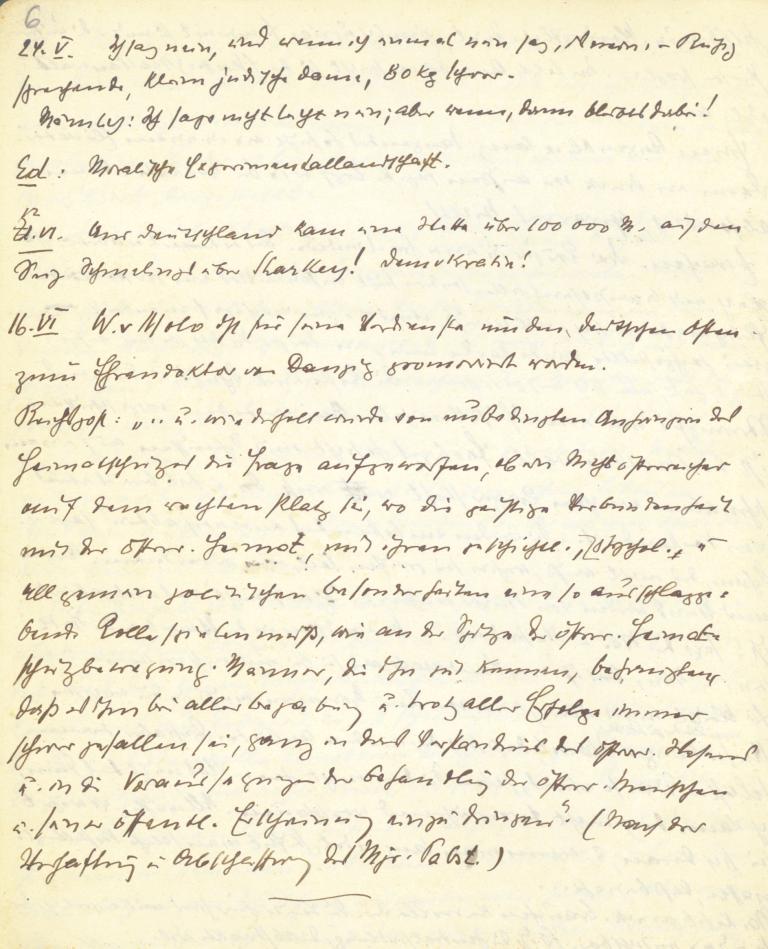 6
24. V. Ich sag nein, und wenn ich einmal nein sag, Russisch
sprechende, kleine jüdische Dame, 80 kg schwer.
Männlich: Ich sage nicht leicht nein; aber wenn, dann bleibts dabei!
Ed: Moralische Experimentallandschaft.
12. VI. Aus Deutschland kam eine Stafette über 100 000 M. auf den
Sieg Schmelings über Sharkey! Demokratie!
16. VI W. v Molo ist für seine Verdienste um den deutschen Osten
zum Ehrendoktor von Danzig promoviert worden.
Reichspost: „.. u. wiederholt wurde von unbedingten Anhängern des
Heimatschutzes die Frage aufgeworfen, ob ein Nichtösterreicher
auf dem rechten Platz sei, wo die geistige Verbundenheit
mit der österr. Heimat, mit ihren geschichtl., psychol., u
allgemein politischen Besonderheiten eine so ausschlagge-
bende Rolle spielen muß, wie an der Spitze der österr. Heimat-
schutzbewegung. Männer, die ihn gut kennen, bezeugten
daß es ihm bei aller Begabung u. trotz aller Erfolge immer
schwer gefallen sei, ganz in das Verständnis des österr. Wesens
u. in die Voraussetzungen der Behandlung der österr. Menschen
u. seiner öffentl. Erscheinung einzudringen“. (Nach der
Verhaftung u Abschaffung des Mjr. Pabst.)